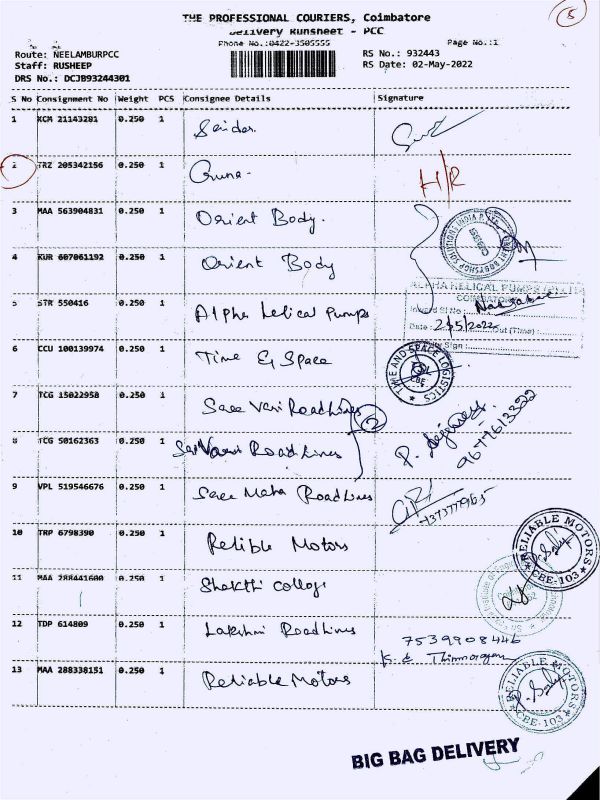 5
THE PROFESSIONAL COURIERS, Coimbatore
Delivery Runsheet - PCC
Phone No.:0422-3505555 Page No.:1
Route: NEELAMBURPCC RS No.: 932443
Staff: RUSHEEP RS Date: 02-May-2022
DRS No.: DCJB93244301
S No Consignment No Weight PCS Consignee Details Signature
1 KCM 21143281 0.250 1
2 TRZ 205342156 0.250 1 Guna. H/R
3 MAA 563904831 0.250 1 Orient Body.
4 KUR 607061192 0.250 1 Orient Body
5 STR 550416 0.250 1 Alpha Lelical Pumps
ALPHA HELICAL PUMPS
COIMBATORE
Inward Sl No :
Date : 2/5/2022 Out (Time) :
Sign :
6 CCU 100139974 0.250 1 Time & Space
TIME AND SPACE LOGISTICS
CBE
7 TCG 15022958 0.250 1 Saree Vari RoadLines
2
8 TCG 50162363 0.250 1 Sai Vari RoadLines
9677613322
9 VPL 519546676 0.250 1 Saree Maha RoadLines
10 TRP 6798390 0.250 1 Relible Motors
RELIABLE MOTORS
CBE-103
11 MAA 288441600 0.250 1 Shakthi college
12 TDP 614809 0.250 1 Lakshmi Roadlines 7539908446
13 MAA 288338151 0.250 1 Reliable Motors
RELIABLE MOTORS
CBE-103
BIG BAG DELIVERY